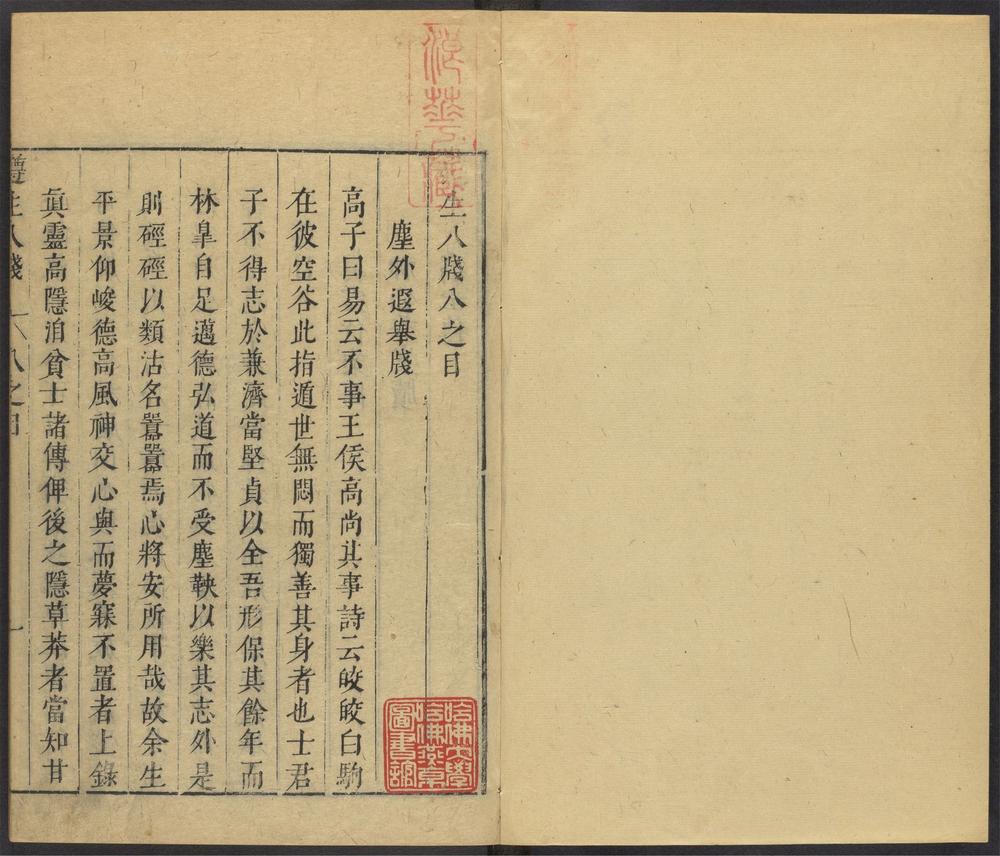 生八牋八之目
塵外遐舉牋
高子曰易云不事王侯高尚其事詩云皎皎白駒
在彼空谷此指遁世無悶而獨善其身者也士君
子不得志於兼濟當堅貞以全吾形保其餘年而
林臯自足邁德弘道而不受塵鞅以樂其志外是
則硜硜以類沽名囂囂焉心將安所用哉故余生
平景仰峻德高風神交心與而夢寐不置者上錄
眞靈高隱洎貧士諸傳俾後之隱草莽者當知甘
遵生八牋 八之目 一
哈佛大學
哈佛燕京
圖書館